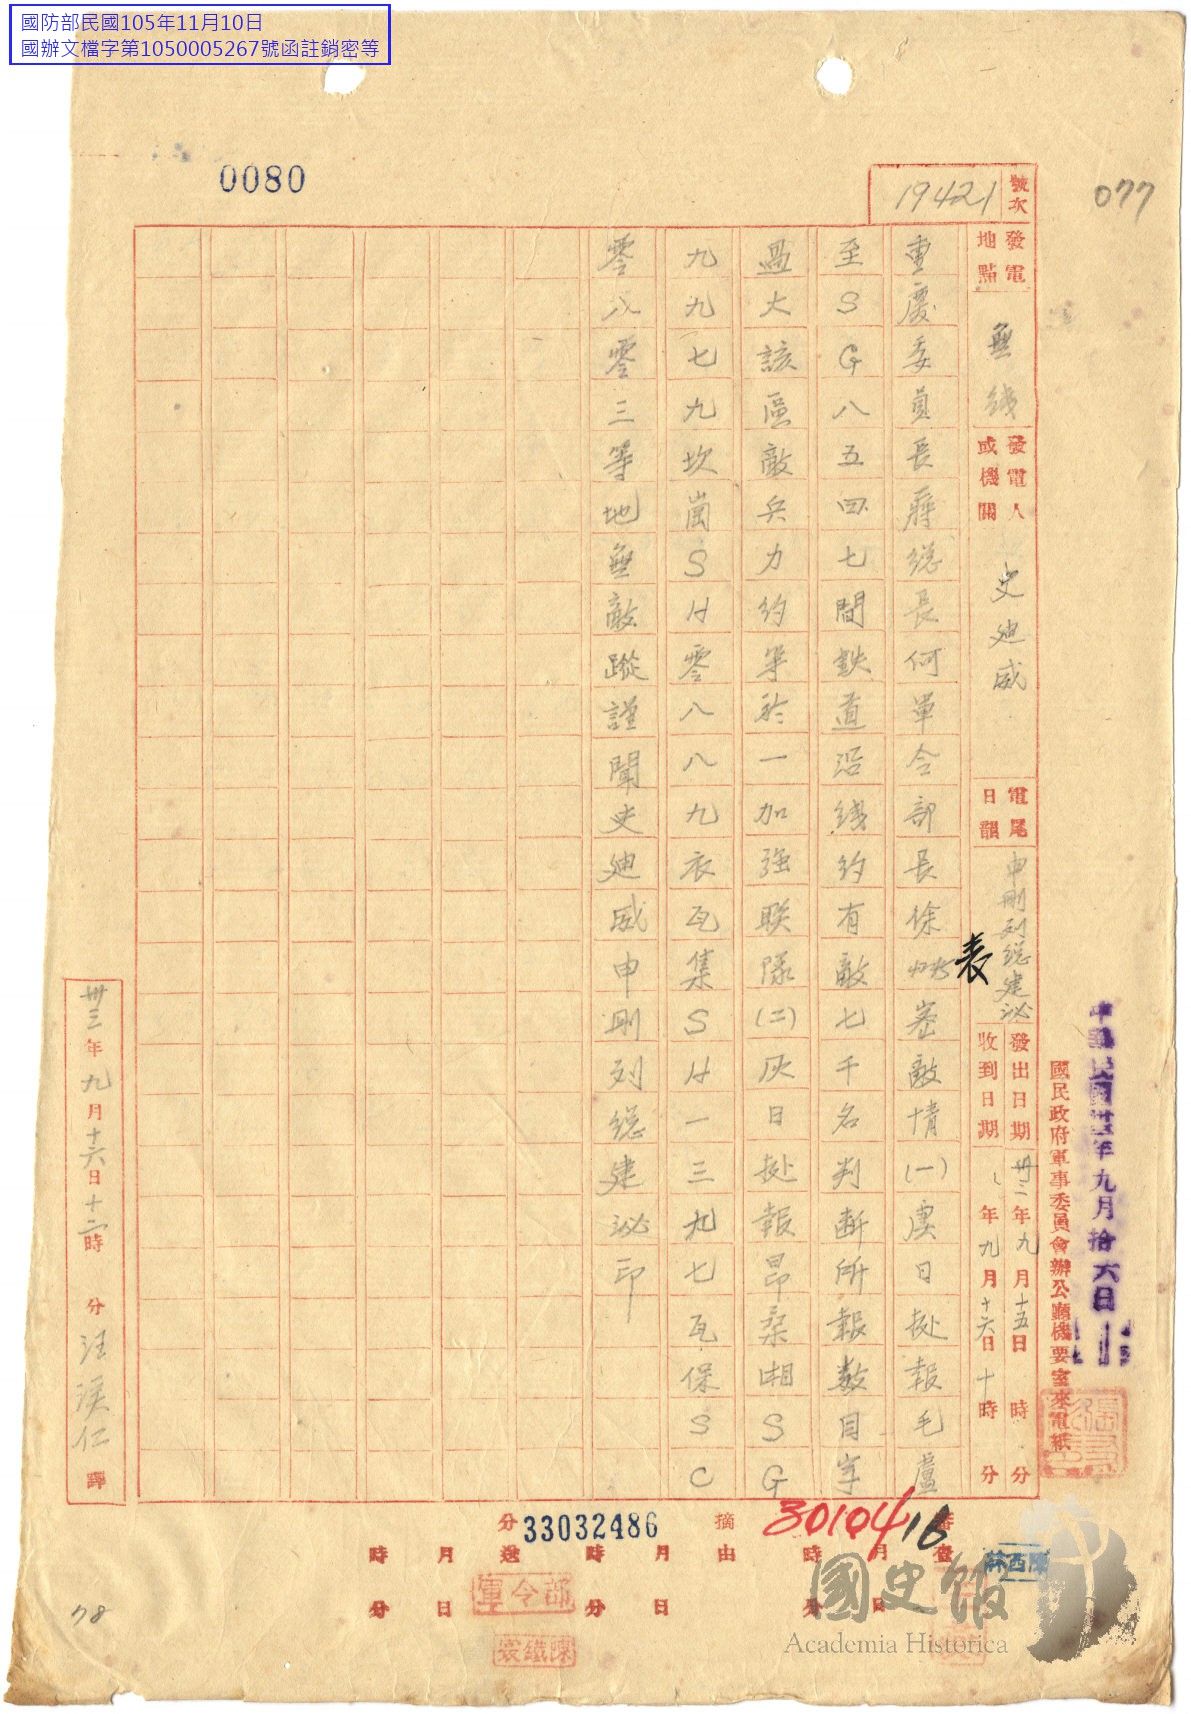 國防部民國105年11月10日
國辦文檔字第1050005267號函註銷密等
0080
077
號次
19421
發電地點
無綫
發電人或機關
史廸威
電尾日韻
申刪列總建泌
發出日期 卅三年九月十五日 時 分
收到日期 年九月十六日十時 分
國民政府軍事委員會辦公廳機要室來電紙
中華民國卅三年九月拾六日
表
重慶委員長蔣總長何軍令部長徐 密敵情(一)虞日據報毛盧
至SG八五四七間鉄道沿綫約有敵七千名判斷所報數目字
過大該區敵兵力約等於一加强聯隊(二)灰日據報昂桑湘SG
九九七九坎崗SH零八八九衣瓦集SH一三九七瓦保SC
零八零三等地無敵蹤謹聞史廸威申刪列總建泌印
卅三年九月十六日十二時 分 汪漢仁 譯
分送
33032486
摘由
3010416
月 日 時 分
月 日 時 分
軍令部
陳鐵裳
林西陳
78
國史館
Academia Historica